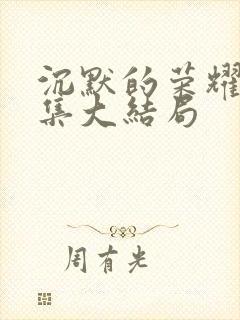 沉默的荣耀
集大结局
周有光